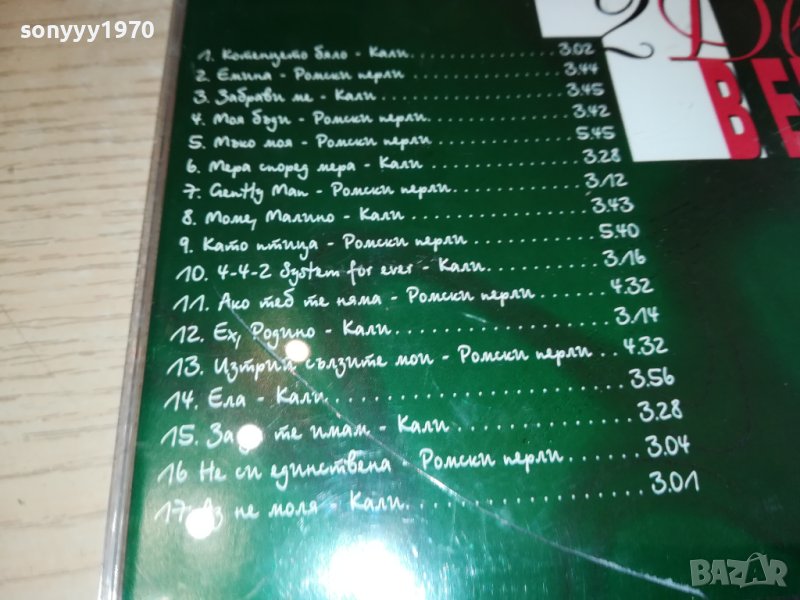 sonyyy1970
1. Котенцето бяло - Кали 3.02
2. Емина - Ромски перли 3.44
3. Забрави ме - Кали 3.45
4. Моя бъди - Ромски перли 3.42
5. Мъко моя - Ромски перли 5.45
6. Мера според мера - Кали 3.28
7. Gently Man - Ромски перли 3.12
8. Моме, Малино - Кали 3.43
9. Като птица - Ромски перли 5.40
10. 4-4-2 System for ever - Кали 3.16
11. Ако теб те няма - Ромски перли 4.32
12. Ех, Родино - Кали 3.14
13. Изтрий сълзите мои - Ромски перли 4.32
14. Ела - Кали 3.56
15. За да те имам - Кали 3.28
16 Не си единствена - Ромски перли 3.04
17. Аз не моля - Кали 3.01
2
BAZAR
bazar.bg